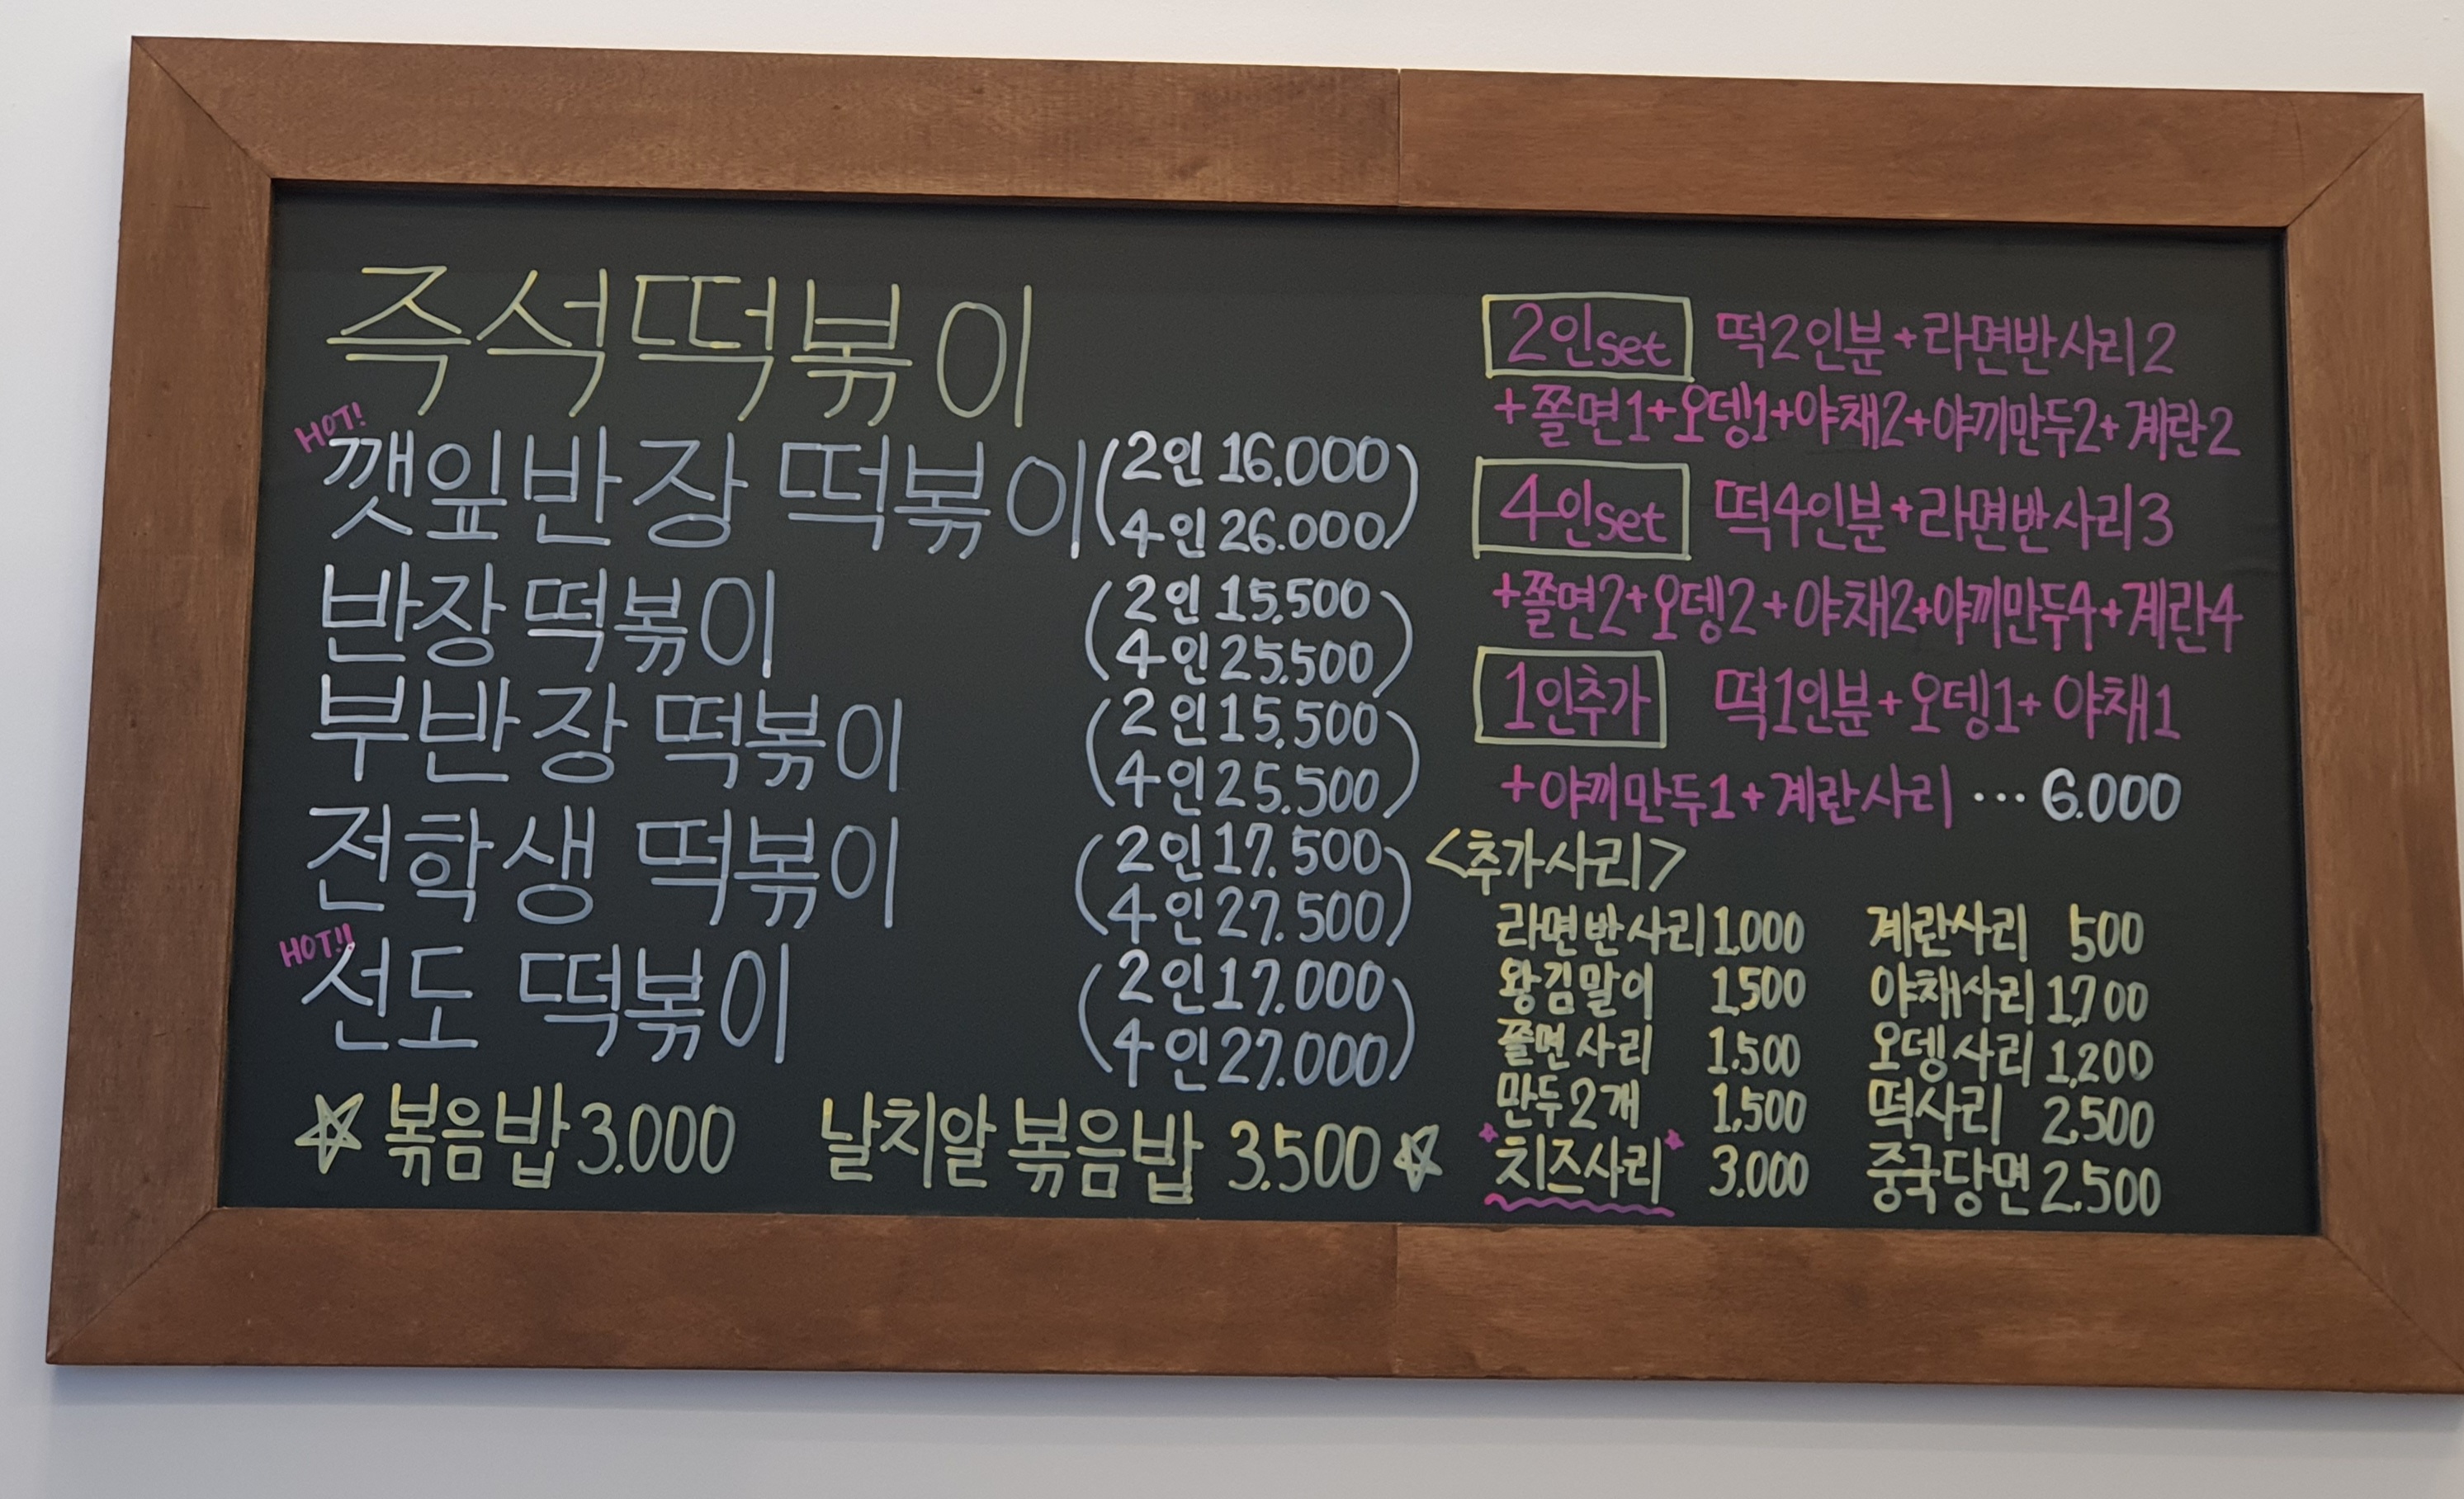 즉석떡볶이
HOT!
깻잎반장 떡볶이 (2인 16.000
4인 26.000)
반장 떡볶이 (2인 15.500
4인 25.500)
부반장 떡볶이 (2인 15.500
4인 25.500)
전학생 떡볶이 (2인 17.500
4인 27.500)
HOT!!
선도 떡볶이 (2인 17.000
4인 27.000)
☆ 볶음밥 3.000 날치알 볶음밥 3.500 ☆
2인set 떡2인분+라면반사리2
+쫄면1+오뎅1+야채2+야끼만두2+계란2
4인set 떡4인분+라면반사리3
+쫄면2+오뎅2+야채2+야끼만두4+계란4
1인추가 떡1인분+오뎅1+야채1
+야끼만두1+계란사리 ... 6.000
<추가사리>
라면반사리 1.000 계란사리 500
왕김말이 1.500 야채사리 1,700
쫄면사리 1.500 오뎅사리 1,200
만두2개 1,500 떡사리 2.500
치즈사리 3.000 중국당면 2.500